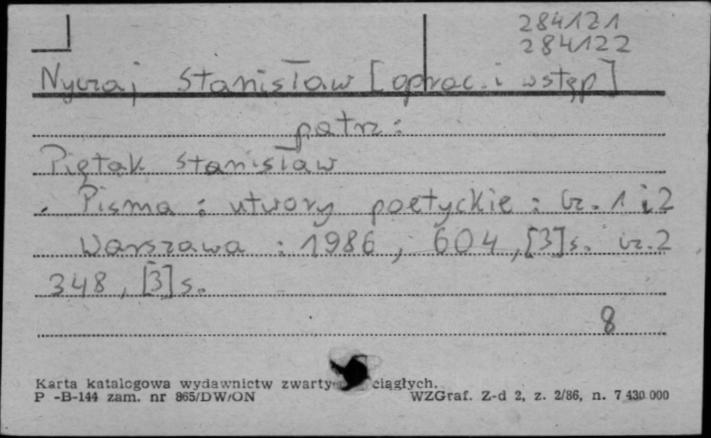 284121
284122
Nyczaj Stanisław [oprac. i wstęp]
patrz:
Piętak Stanisław
Pisma : utwory poetyckie : Cz. 1 i 2
Warszawa : 1986, 604, [3] s. cz. 2
348, [3] s.
8
Karta katalogowa wydawnictw zwarty ciągłych.
P -B-144 zam. nr 865/DW/ON WZGraf. Z-d 2, z. 2/86, n. 7 430 000